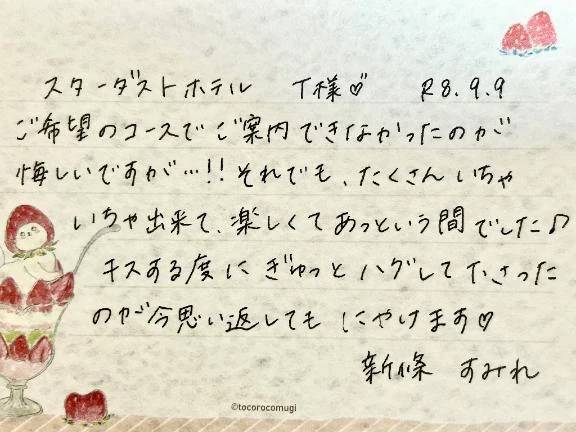 スターダストホテル T様♡ R8.9.9
ご希望のコースでご案内できなかったのが
悔しいですが…!! それでも、たくさんいちゃ
いちゃ出来て、楽しくてあっという間でした♪
キスする度にぎゅっとハグしてたさった
のが今思い返してもにやけます♡
新條 すみれ
©tocorocomugi